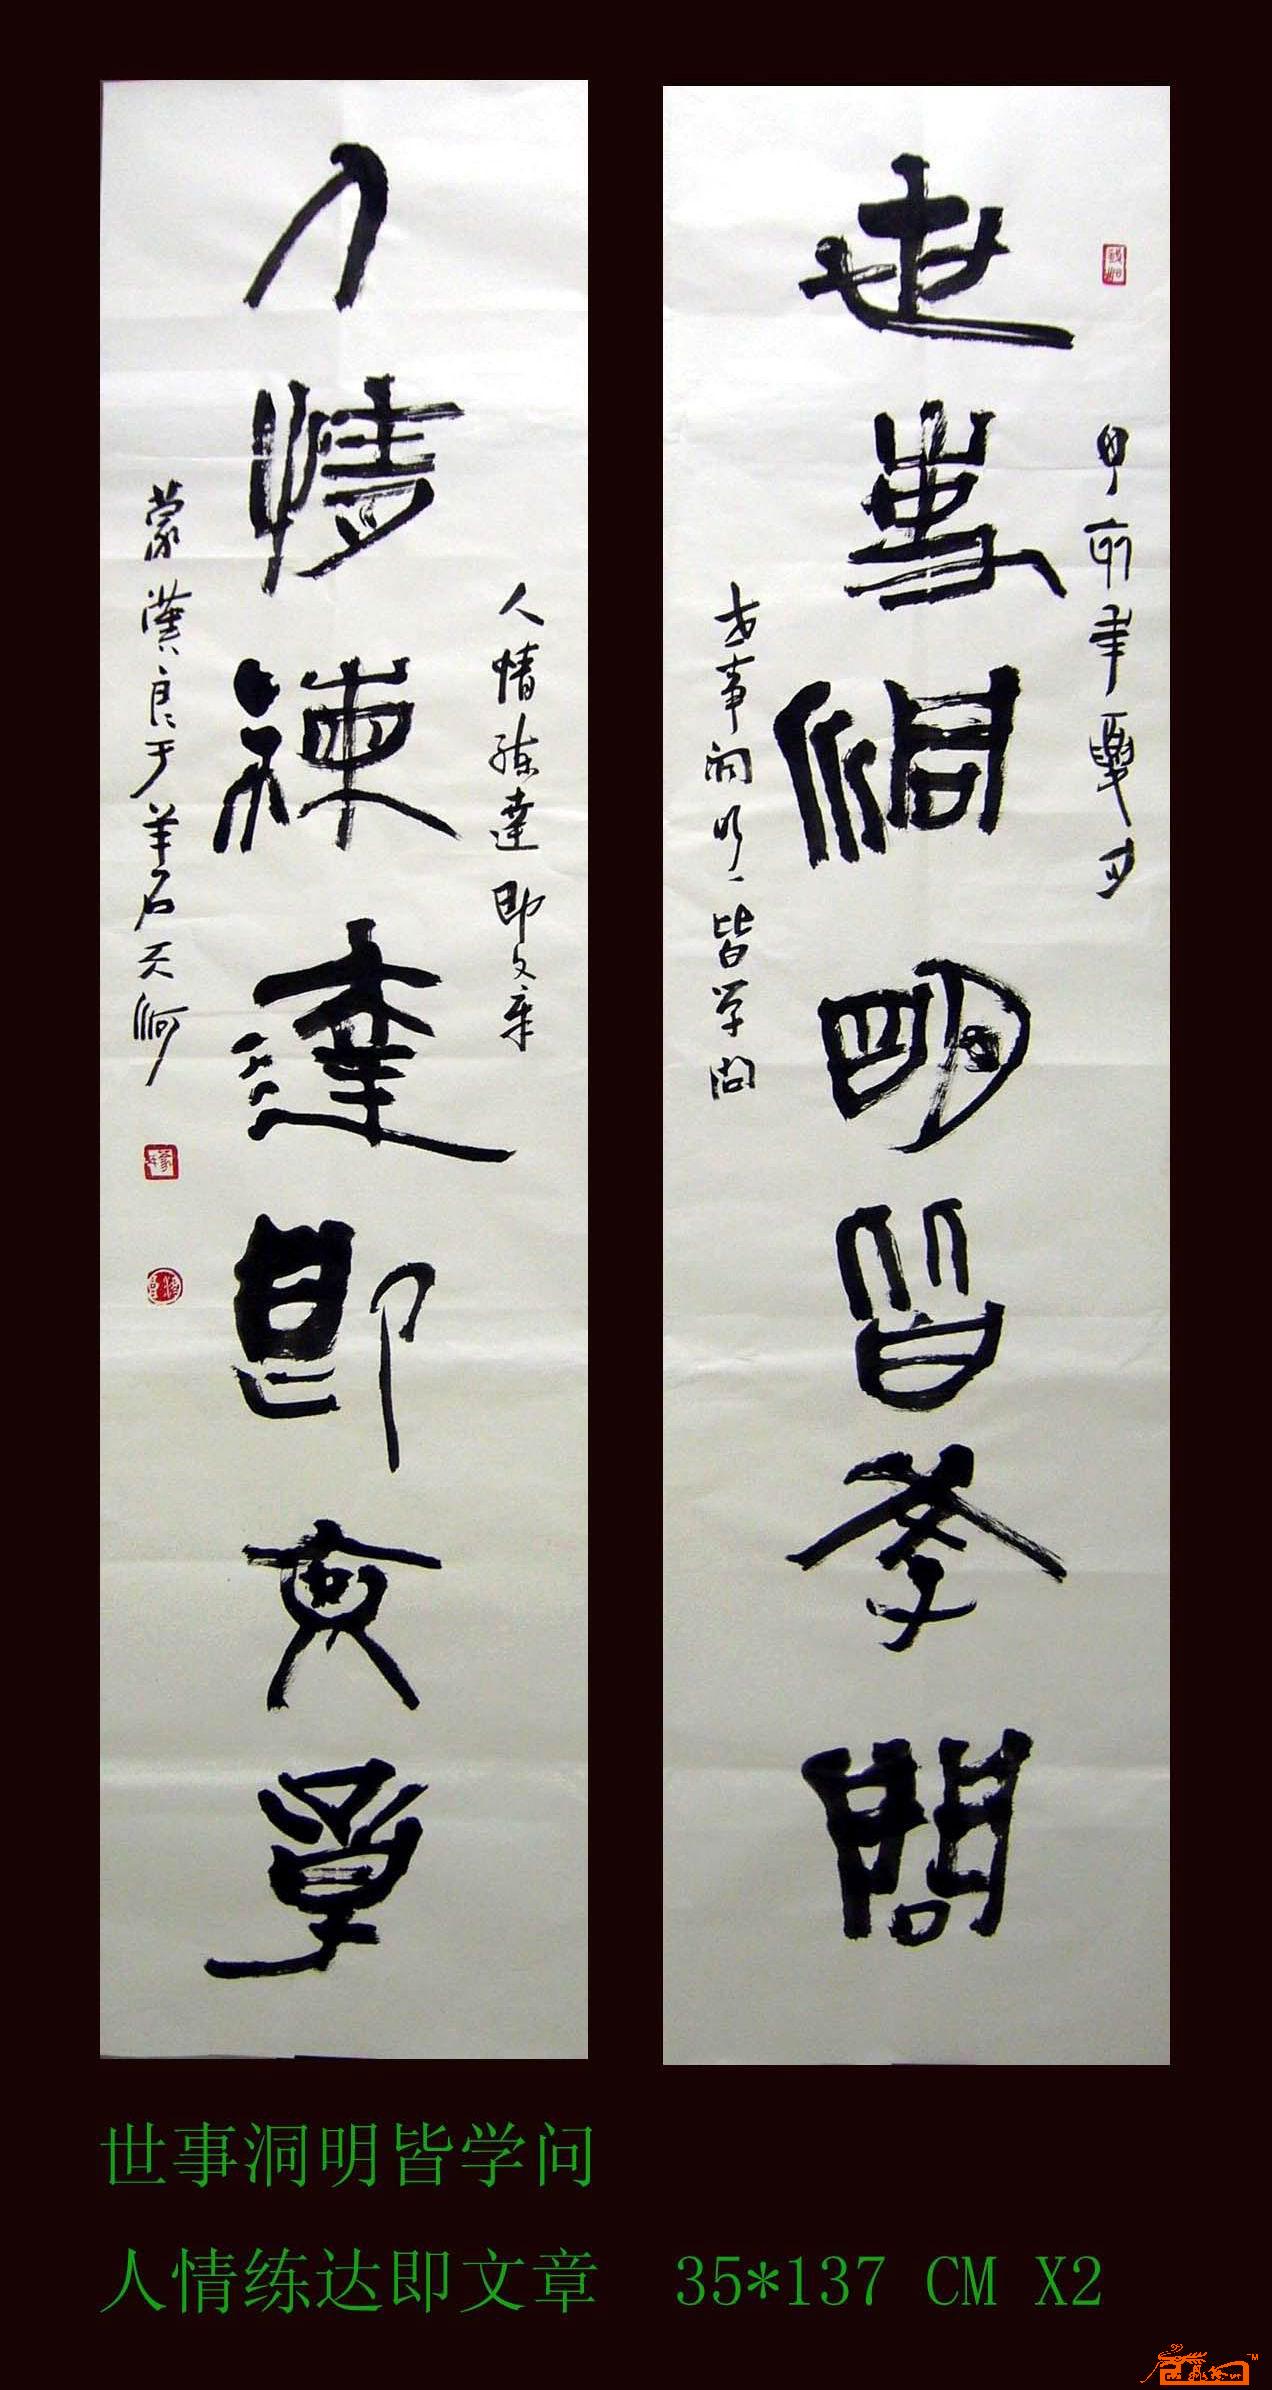 世事洞明皆学问
甲申年夏月
世事洞明皆学问
人情练达即文章
人情练达即文章
蒙汉良于羊石天河
世事洞明皆学问
人情练达即文章 35*137 CM X2